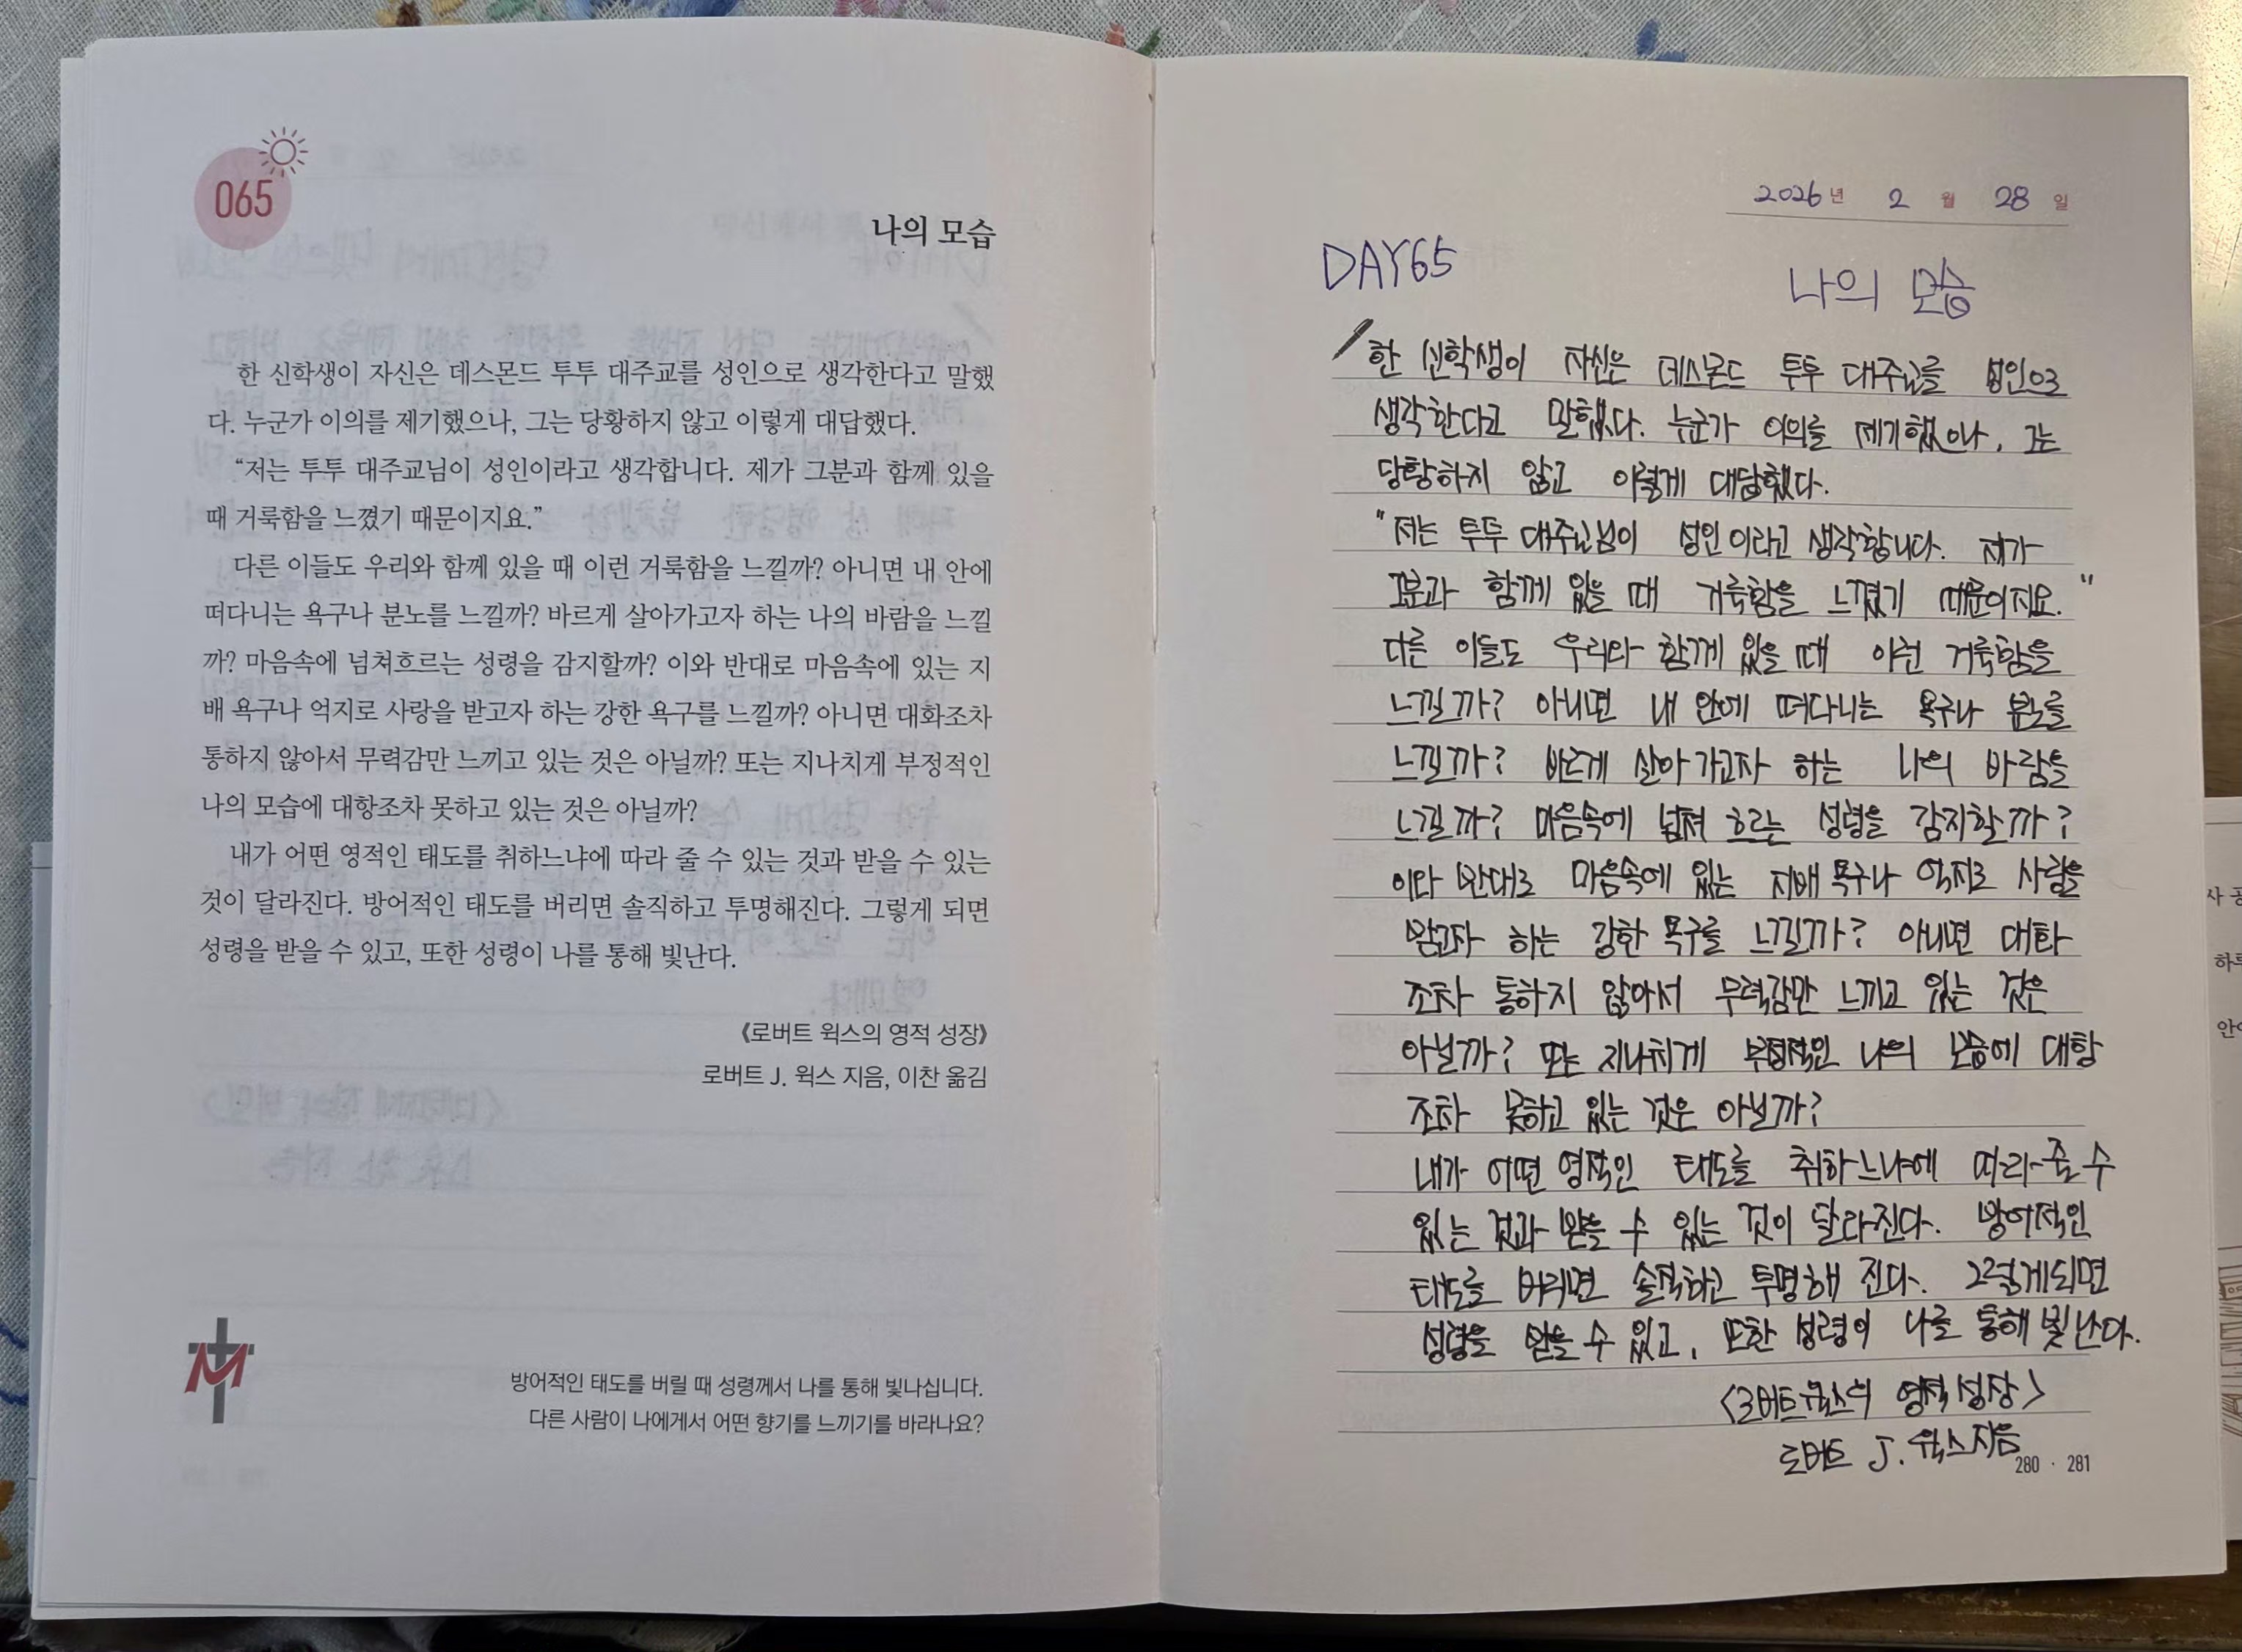 065
나의 모습
한 신학생이 자신은 데스몬드 투투 대주교를 성인으로 생각한다고 말했
다. 누군가 이의를 제기했으나, 그는 당황하지 않고 이렇게 대답했다.
“저는 투투 대주교님이 성인이라고 생각합니다. 제가 그분과 함께 있을
때 거룩함을 느꼈기 때문이지요.”
다른 이들도 우리와 함께 있을 때 이런 거룩함을 느낄까? 아니면 내 안에
떠다니는 욕구나 분노를 느낄까? 바르게 살아가고자 하는 나의 바람을 느낄
까? 마음속에 넘쳐흐르는 성령을 감지할까? 이와 반대로 마음속에 있는 지
배 욕구나 억지로 사랑을 받고자 하는 강한 욕구를 느낄까? 아니면 대화조차
통하지 않아서 무력감만 느끼고 있는 것은 아닐까? 또는 지나치게 부정적인
나의 모습에 대항조차 못하고 있는 것은 아닐까?
내가 어떤 영적인 태도를 취하느냐에 따라 줄 수 있는 것과 받을 수 있는
것이 달라진다. 방어적인 태도를 버리면 솔직하고 투명해진다. 그렇게 되면
성령을 받을 수 있고, 또한 성령이 나를 통해 빛난다.
《로버트 윅스의 영적 성장》
로버트 J. 윅스 지음, 이찬 옮김
M
방어적인 태도를 버릴 때 성령께서 나를 통해 빛나십니다.
다른 사람이 나에게서 어떤 향기를 느끼기를 바라나요?
2026년 2월 28일
DAY65 나의 모습
한 신학생이 자신은 데스몬드 투투 대주교를 성인으로
생각한다고 말했다. 누군가 이의를 제기했으나, 그는
당황하지 않고 이렇게 대답했다.
"저는 투투 대주교님이 성인이라고 생각합니다. 제가
그분과 함께 있을 때 거룩함을 느꼈기 때문이지요."
다른 이들도 우리와 함께 있을 때 이런 거룩함을
느낄까? 아니면 내 안에 떠다니는 욕구나 분노를
느낄까? 바르게 살아가고자 하는 나의 바람을
느낄까? 마음속에 넘쳐 흐르는 성령을 감지할까?
이와 반대로 마음속에 있는 지배 욕구나 억지로 사랑을
받고자 하는 강한 욕구를 느낄까? 아니면 대화
조차 통하지 않아서 무력감만 느끼고 있는 것은
아닐까? 또는 지나치게 부정적인 나의 모습에 대항
조차 못하고 있는 것은 아닐까?
내가 어떤 영적인 태도를 취하느냐에 따라 줄 수
있는 것과 받을 수 있는 것이 달라진다. 방어적인
태도를 버리면 솔직하고 투명해 진다. 그렇게되면
성령을 받을 수 있고, 또한 성령이 나를 통해 빛난다.
<로버트 윅스의 영적 성장>
로버트 J. 윅스 지음
280 · 281